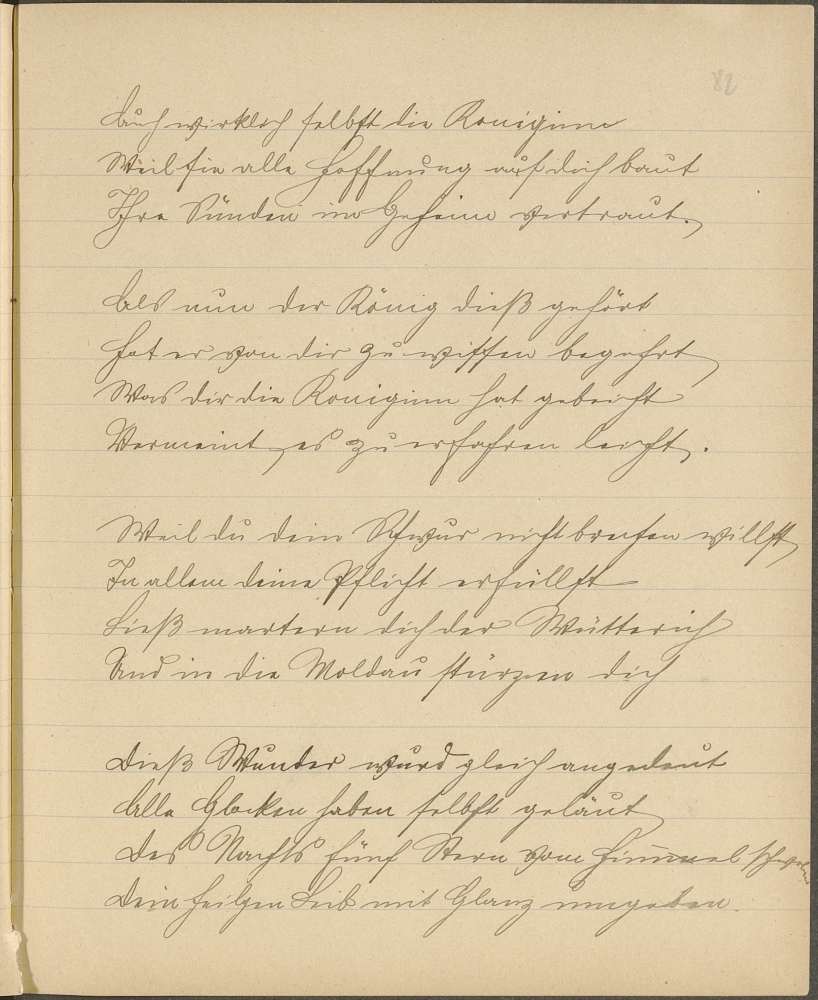 82
Auch wirklich selbst die Königinn
Weil sie alle Hoffnung auf dich baut
Ihre Sünden im Geheim vertraut.
Als nun der König dieß gehört
Hat er von dir zu wissen begehrt
Was dir die Königinn hat gebeicht
Vermeint es zu erfahren leicht.
Weil du dein Schwur nicht brechen willst
In allem deine Pflicht erfüllst
Ließ martern dich der Wütterich
Und in die Moldau stürzen dich
Dieß Wunder wurd gleich angedeut
Alle Glocken haben selbst geläut
Des Nachts fünf Stern vom Himmel schweben
Dein heilgen Leib mit Glanz umgeben.